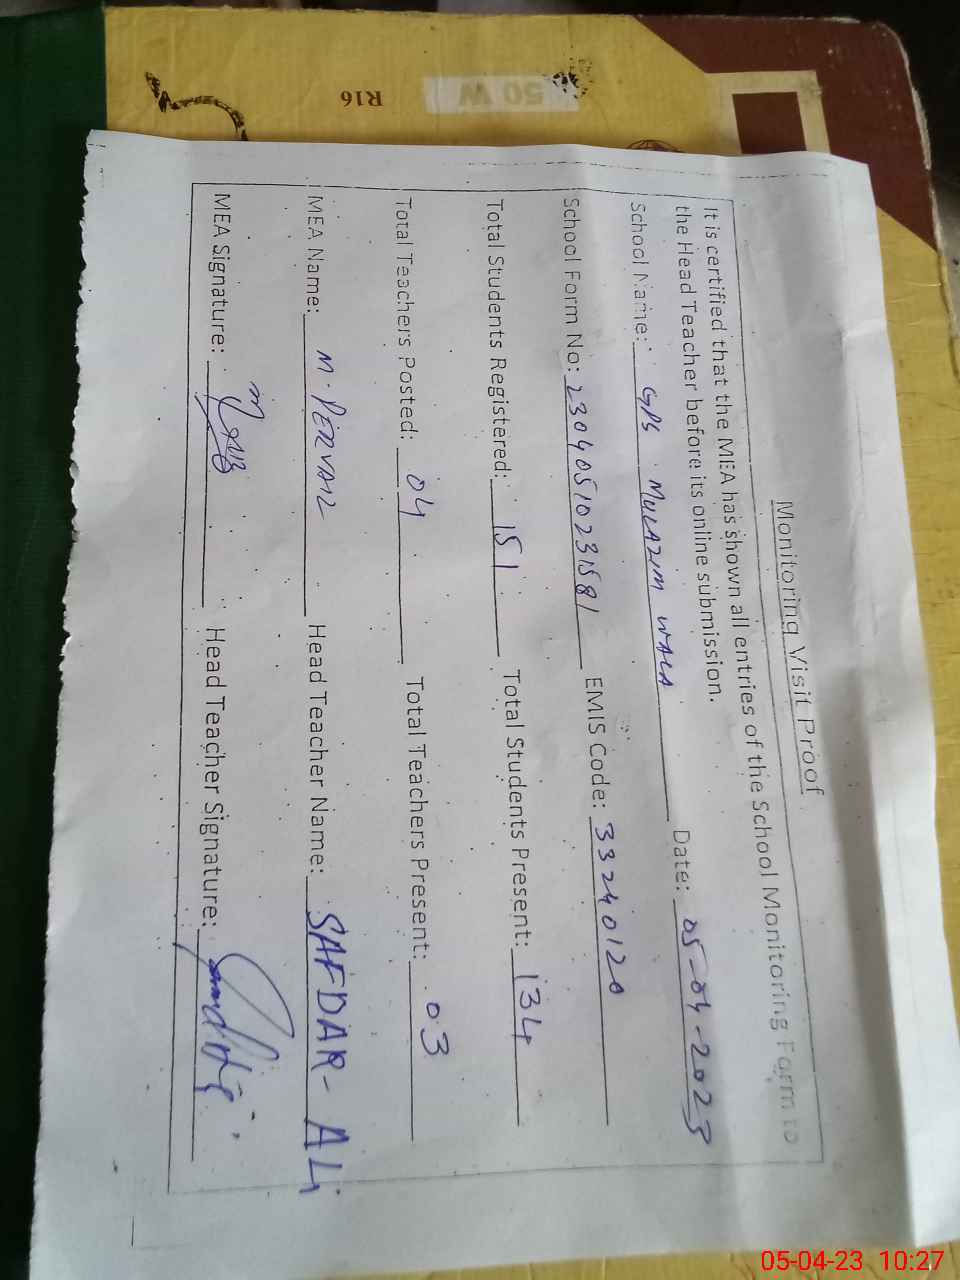 R16
50 W
Monitoring Visit Proof
It is certified that the MEA has shown all entries of the School Monitoring Form to
the Head Teacher before its online submission.
School Name: GPS MULAZIM WALA Date: 05-04-2023
School Form No: 23040510231581 EMIS Code: 33240120
Total Students Registered: 151 Total Students Present: 134
Total Teachers Posted: 04 Total Teachers Present: 03
MEA Name: M. PERVAIZ Head Teacher Name: SAFDAR-ALI
MEA Signature: Head Teacher Signature:
05-04-23 10:27